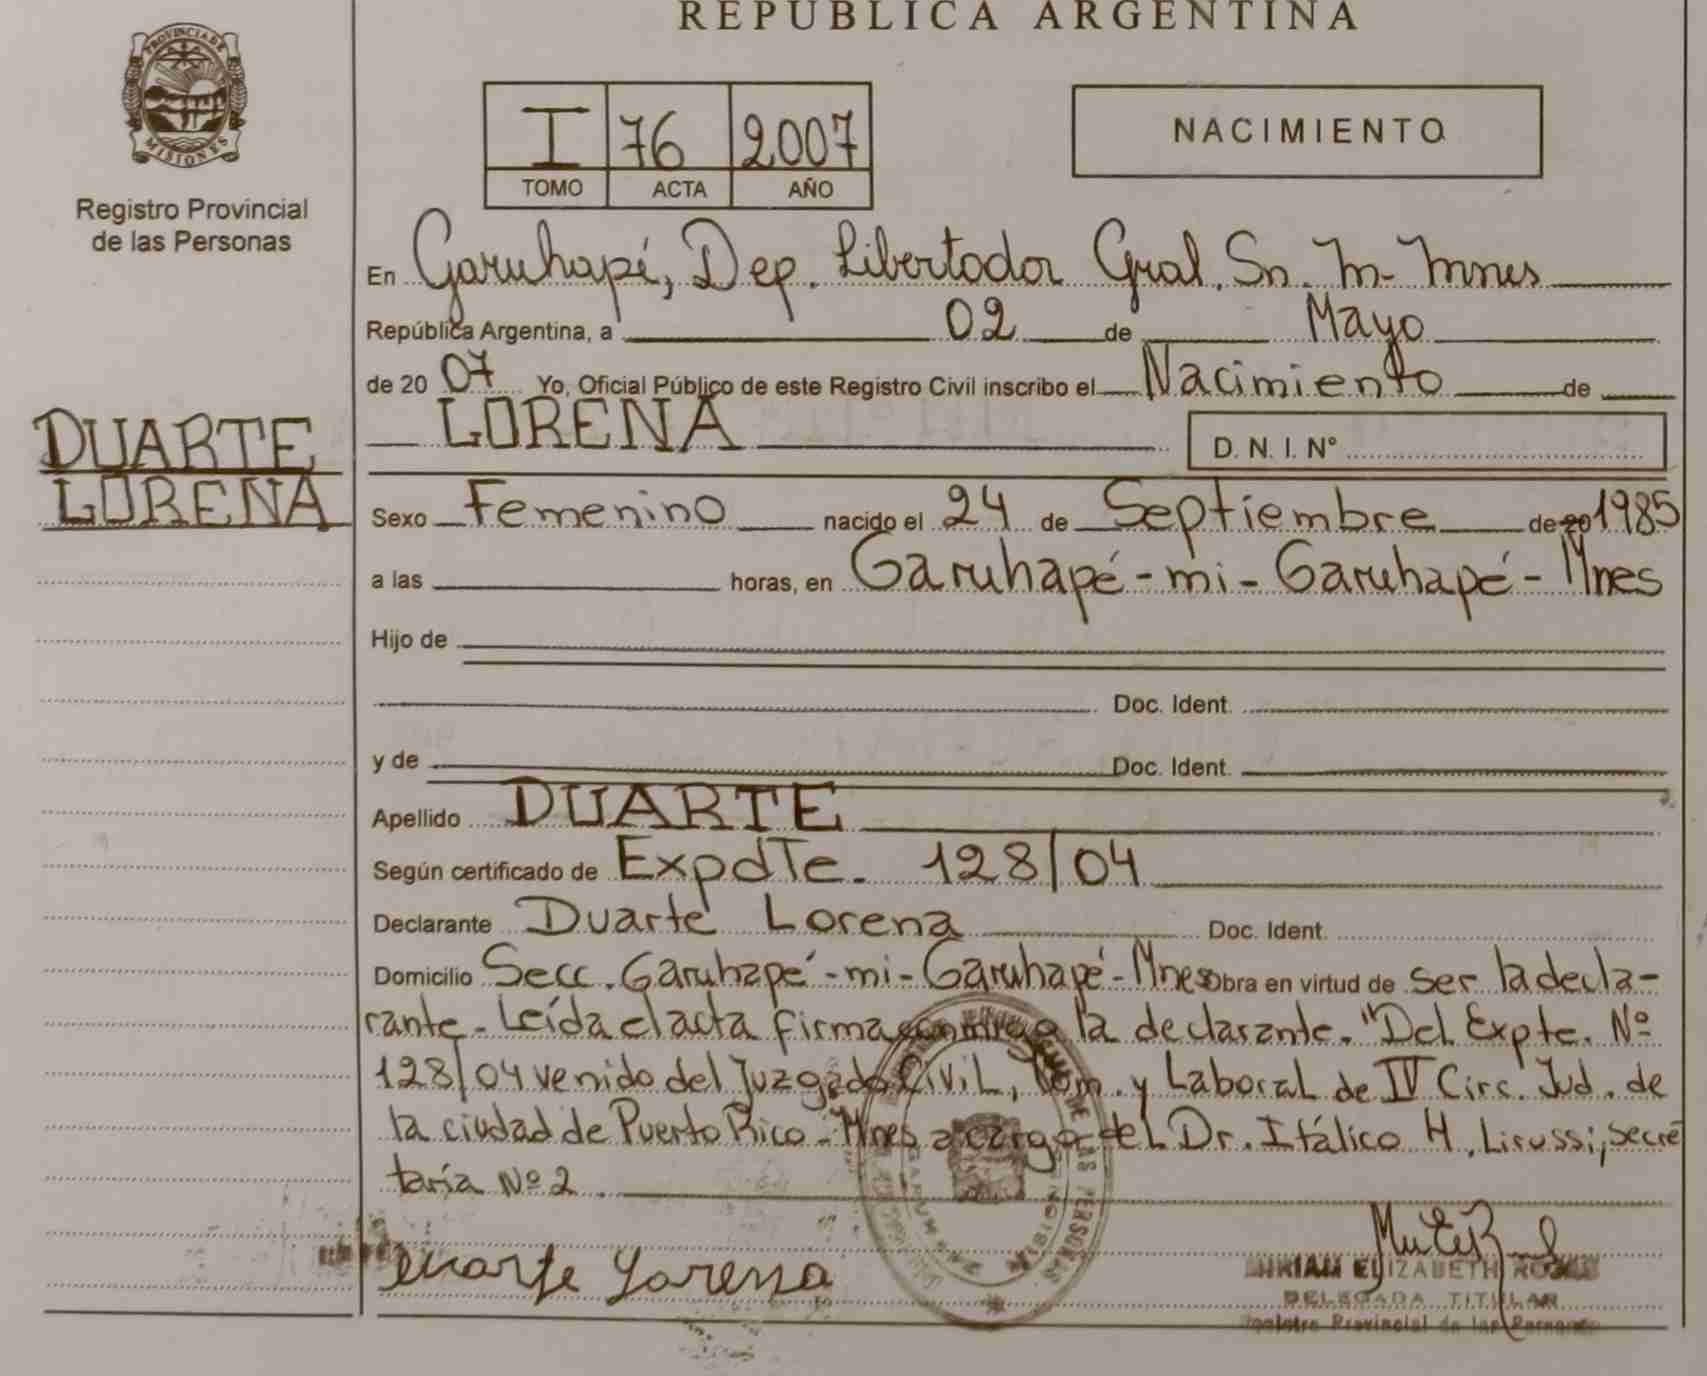 REPUBLICA ARGENTINA
PROVINCIA DE
MISIONES
Registro Provincial
de las Personas
I 76 2007
TOMO ACTA AÑO
NACIMIENTO
En Garuhapé, Dep. Libertador Gral. Sn. M- Mnes
República Argentina, a 02 de Mayo
de 20 07 Yo, Oficial Público de este Registro Civil inscribo el Nacimiento de
LORENA D. N. I. N°
DUARTE
LORENA
Sexo Femenino nacido el 24 de Septiembre de 20 1985
a las horas, en Garuhapé-mi-Garuhapé-Mnes
Hijo de
Doc. Ident.
y de Doc. Ident.
Apellido DUARTE
Según certificado de ExpdTe. 128/04
Declarante Duarte Lorena Doc. Ident.
Domicilio Secc. Garuhapé-mi-Garuhapé-Mnes Obra en virtud de ser la decla-
rante. Leída el acta firma conmigo la declarante. "Del Expte. Nº
128/04 venido del Juzgado Civil, Com. y Laboral de IV Circ. Jud. de
la ciudad de Puerto Rico-Mnes a cargo del Dr. Itálico H. Lirussi, Secre
taría Nº 2.
Duarte Lorena
MIRIAM ELIZABETH
DELEGADA TITULAR
Registro Provincial de las Personas